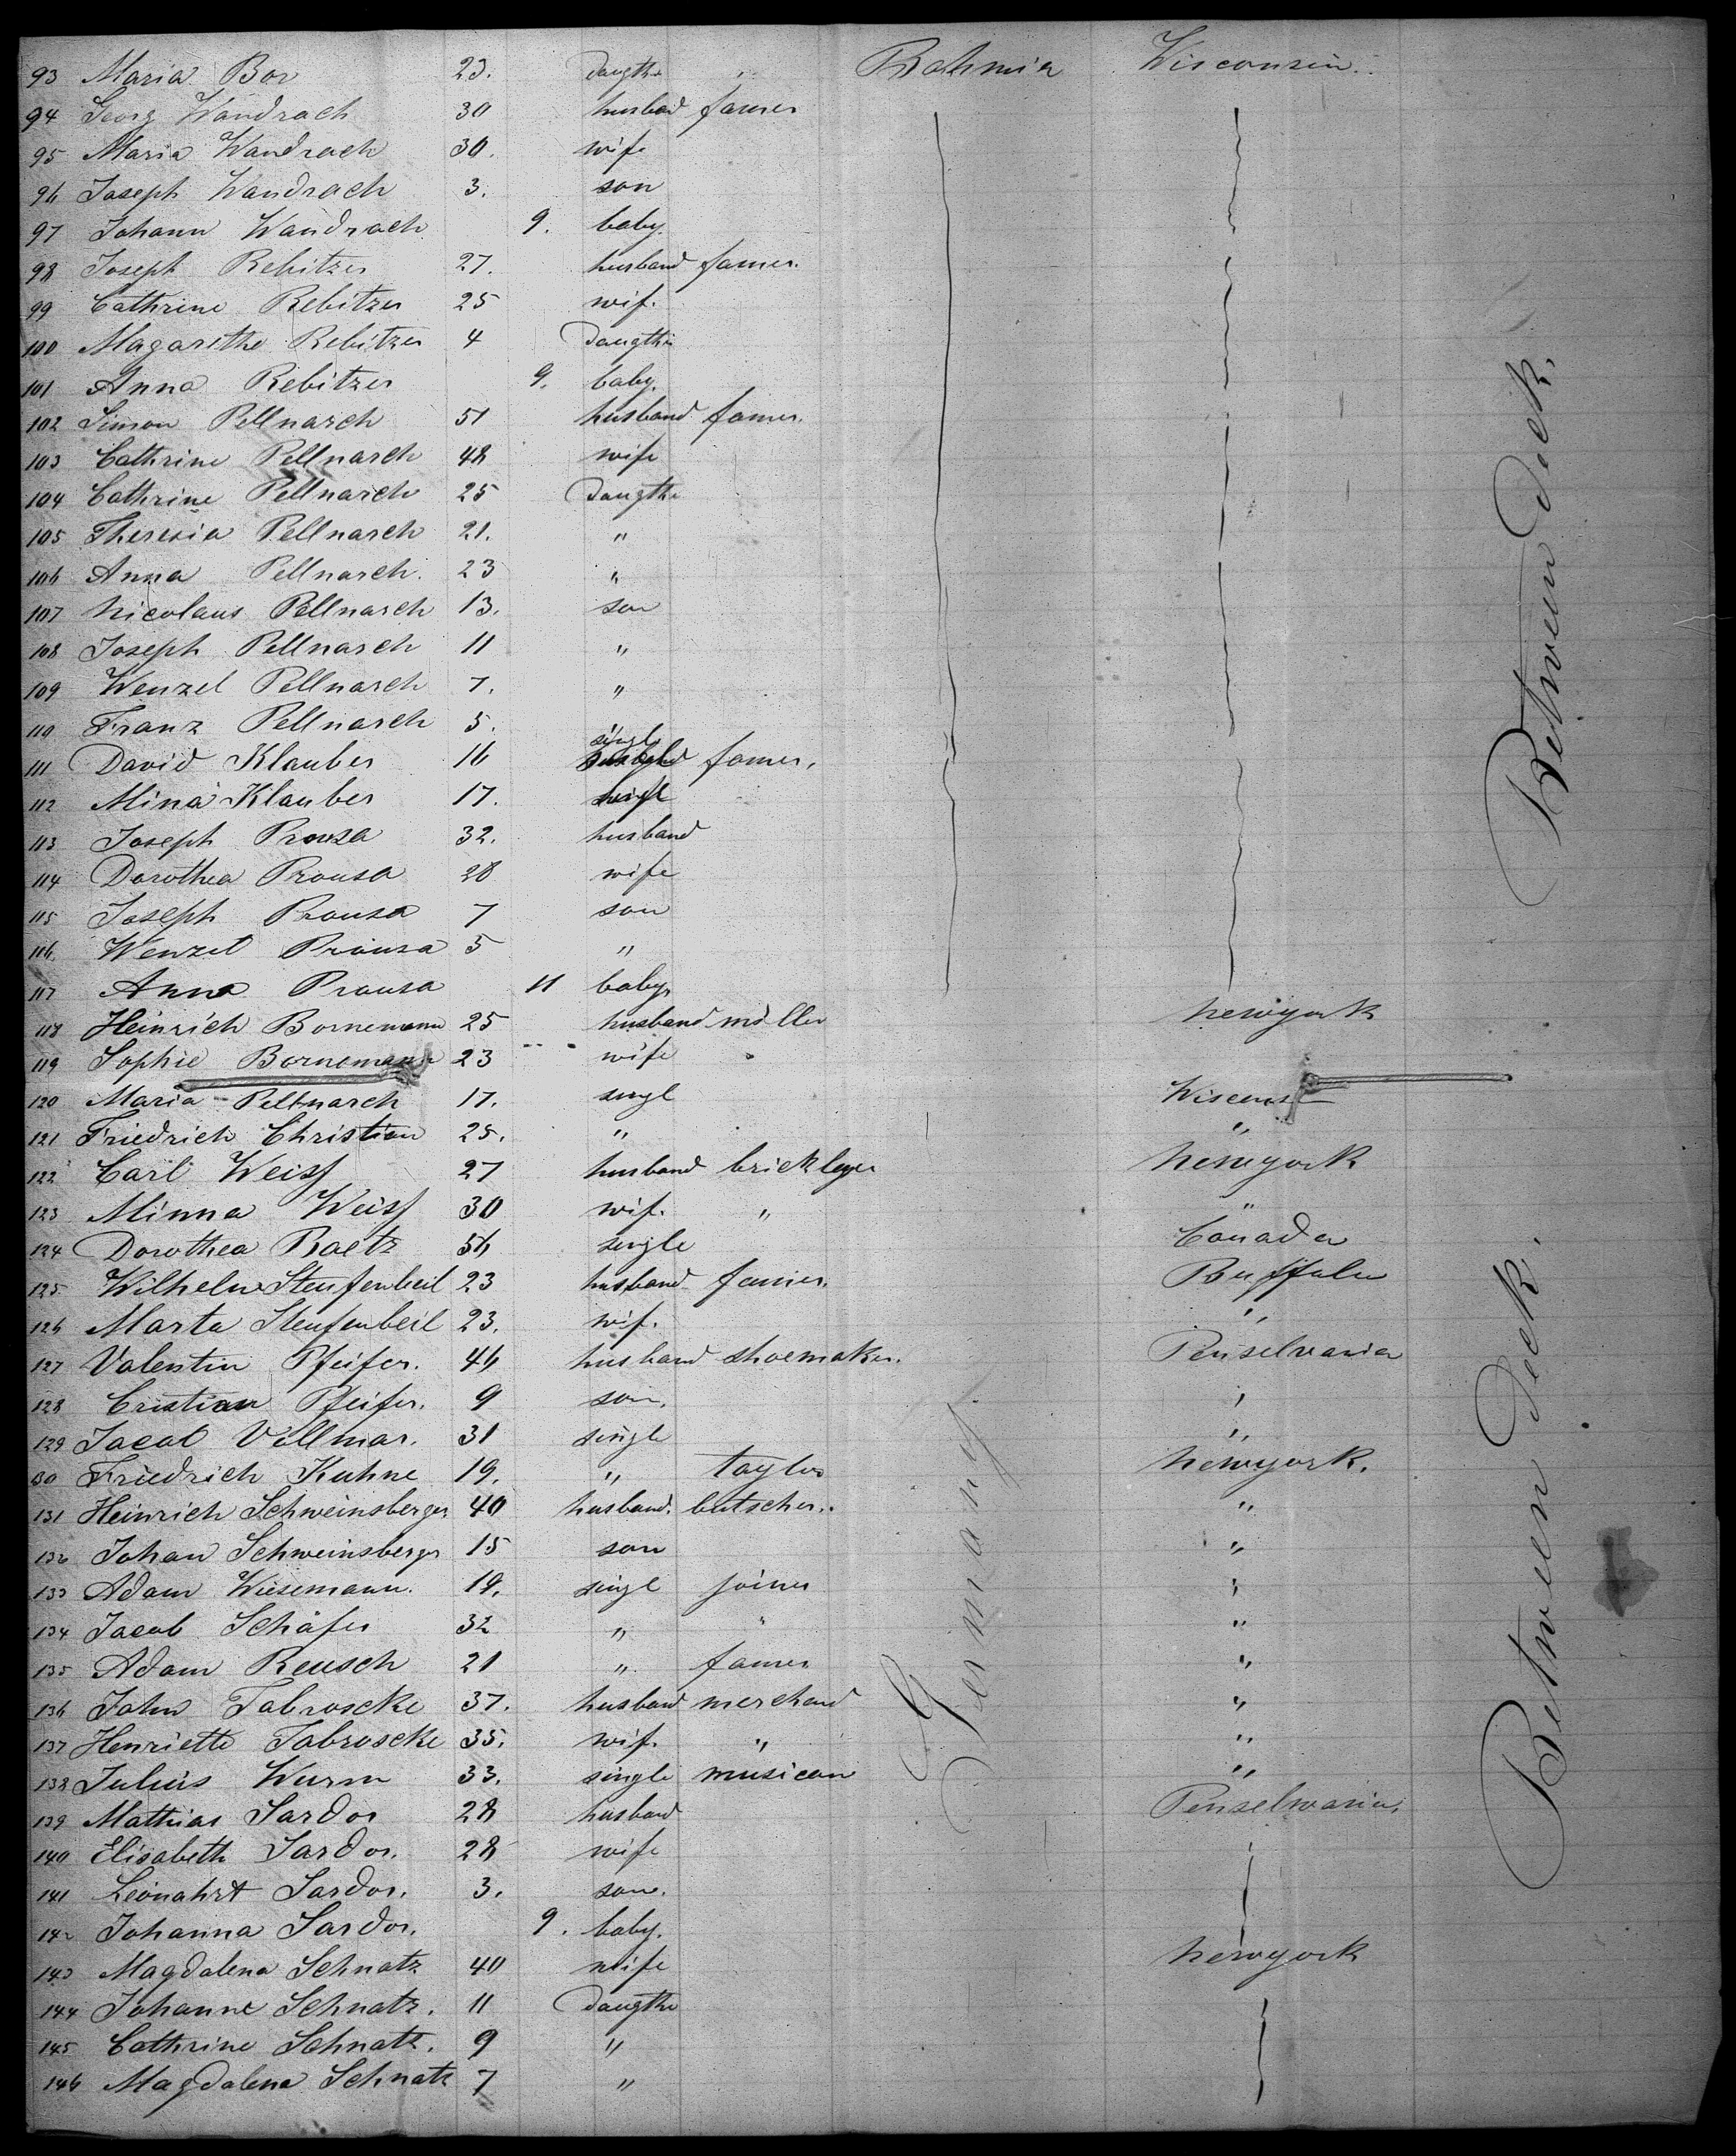 93 Maria Bor 23. Daugthe Bohmia Wisconsin.
94 Georg Wandrach 30 husband famer
95 Maria Wandrach 30. wife
96 Joseph Wandrach 3. son
97 Johann Wandrach 9. baby.
98 Joseph Rebitzer 27. husband famer.
99 Cathrine Rebitzer 25 wif.
100 Magarethe Rebitzer 4 Daugthe
101 Anna Rebitzer 9. baby.
102 Simon Pellnarch 51 husband famer.
103 Cathrine Pellnarch 48 wife
104 Cathrine Pellnarch 25 Daugthe
105 Theresia Pellnarch 21. "
106 Anna Pellnarch. 23 "
107 Nicolaus Pellnarch 13. son
108 Joseph Pellnarch 11 "
109 Wenzel Pellnarch 7. "
110 Franz Pellnarch 5.
111 David Klauber 16 singl famer.
112 Mina Klauber 17. singl
113 Joseph Prousa 32. husband
114 Dorothea Prousa 28 wife
115 Joseph Prousa 7 son
116. Wenzel Prousa 5 "
117 Anna Prousa 11 baby.
118 Heinrich Bornemann 25 husband miller newyork
119 Sophie Bornemann 23 wife
120 Maria Pellnarch 17. singl Wiscons
121 Friedrich Christian 25. " "
122 Carl Weiss 27 husband bricklayer newyork
123 Minna Weiss 30 wif. " "
124 Dorothea Raetz 56 single Canada
125 Wilhelm Steufenbeil 23 husband famer. Buffalo
126 Marta Steufenbeil 23. wif. "
127 Valentin Pfeifer. 46 husband shoemaker. Penselvania
128 Cristian Pfeifer. 9 son. "
129 Jacob Vollmar. 31 single "
130 Friedrich Kuhne 19. " taylor newyork.
131 Heinrich Schweinsberger 40 husband. butscher. "
132 Johan Schweinsberger 15 son "
133 Adam Wiesemann. 19. singl joiner "
134 Jacob Schäfer 32 " " "
135 Adam Reusch 21 " famer "
136 John Tabroscke 37. husband merchand "
137 Henriette Tabroscke 35. wif. " "
138 Julius Wurm 33. single musican "
139 Mathias Sardor 28 husband Penselwania.
140 Elisabeth Sardor. 28 wife
141 Leonahrt Sardor. 3. son.
142 Johanna Sardor. 9. baby.
143 Magdalena Schnatz 40 wife newyork
144 Johanne Schnatz. 11 Daugthe
145 Cathrine Schnatz. 9 "
146 Magdalena Schnatz 7 "
Germany
Between Deck.
Between Deck.